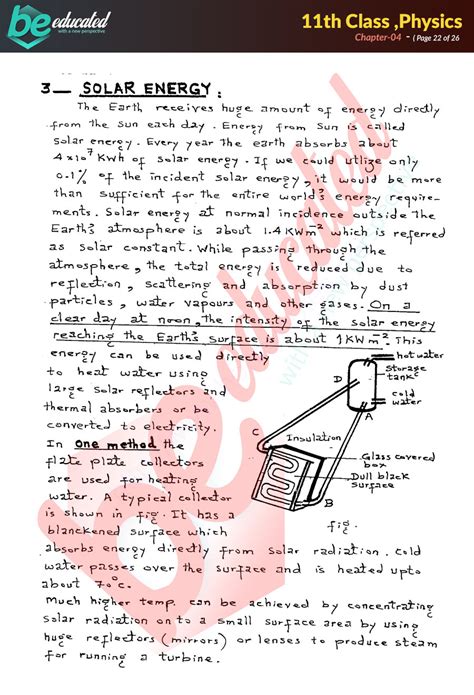 be educated
with a new perspective
11th Class ,Physics
Chapter-04 - ( Page 22 of 26
3__ SOLAR ENERGY:
The Earth receives huge amount of energy directly
from the Sun each day. Energy from Sun is called
Solar energy. Every year the earth absorbs about
4x10⁷ Kwh of solar energy. If we could utlize only
0.1% of the incident Solar energy, it would be more
than sufficient for the entire world's energy require-
ments. Solar energy at normal incidence outside the
Earth's atmosphere is about 1.4 KWm⁻² which is referred
as solar constant. While passing through the
atmosphere, the total energy is reduced due to
reflection, scattering and absorption by dust
particles, water vapours and other gases. On a
clear day at noon, the intensity of the solar energy
reaching the Earth's surface is about 1KWm⁻². This
energy can be used directly
to heat water using
large solar reflectors and
thermal absorbers or be
converted to electricity.
In one method the
flate plate collectors
are used for heating
water. A typical collector
is shown in fig. It has a
blanckened surface which
absorbs energy directly from Solar radiation. Cold
water passes over the surface and is heated upto
about 70°c.
Much higher temp. can be achieved by concentrating
solar radiation on to a small surface area by using
huge reflectors (mirrors) or lenses to produce steam
for running a turbine.
hot water
Storage
tank
D
cold
water
A
C
Insulation
Glass covered
box
Dull black
Surface
B
fig.
be educated